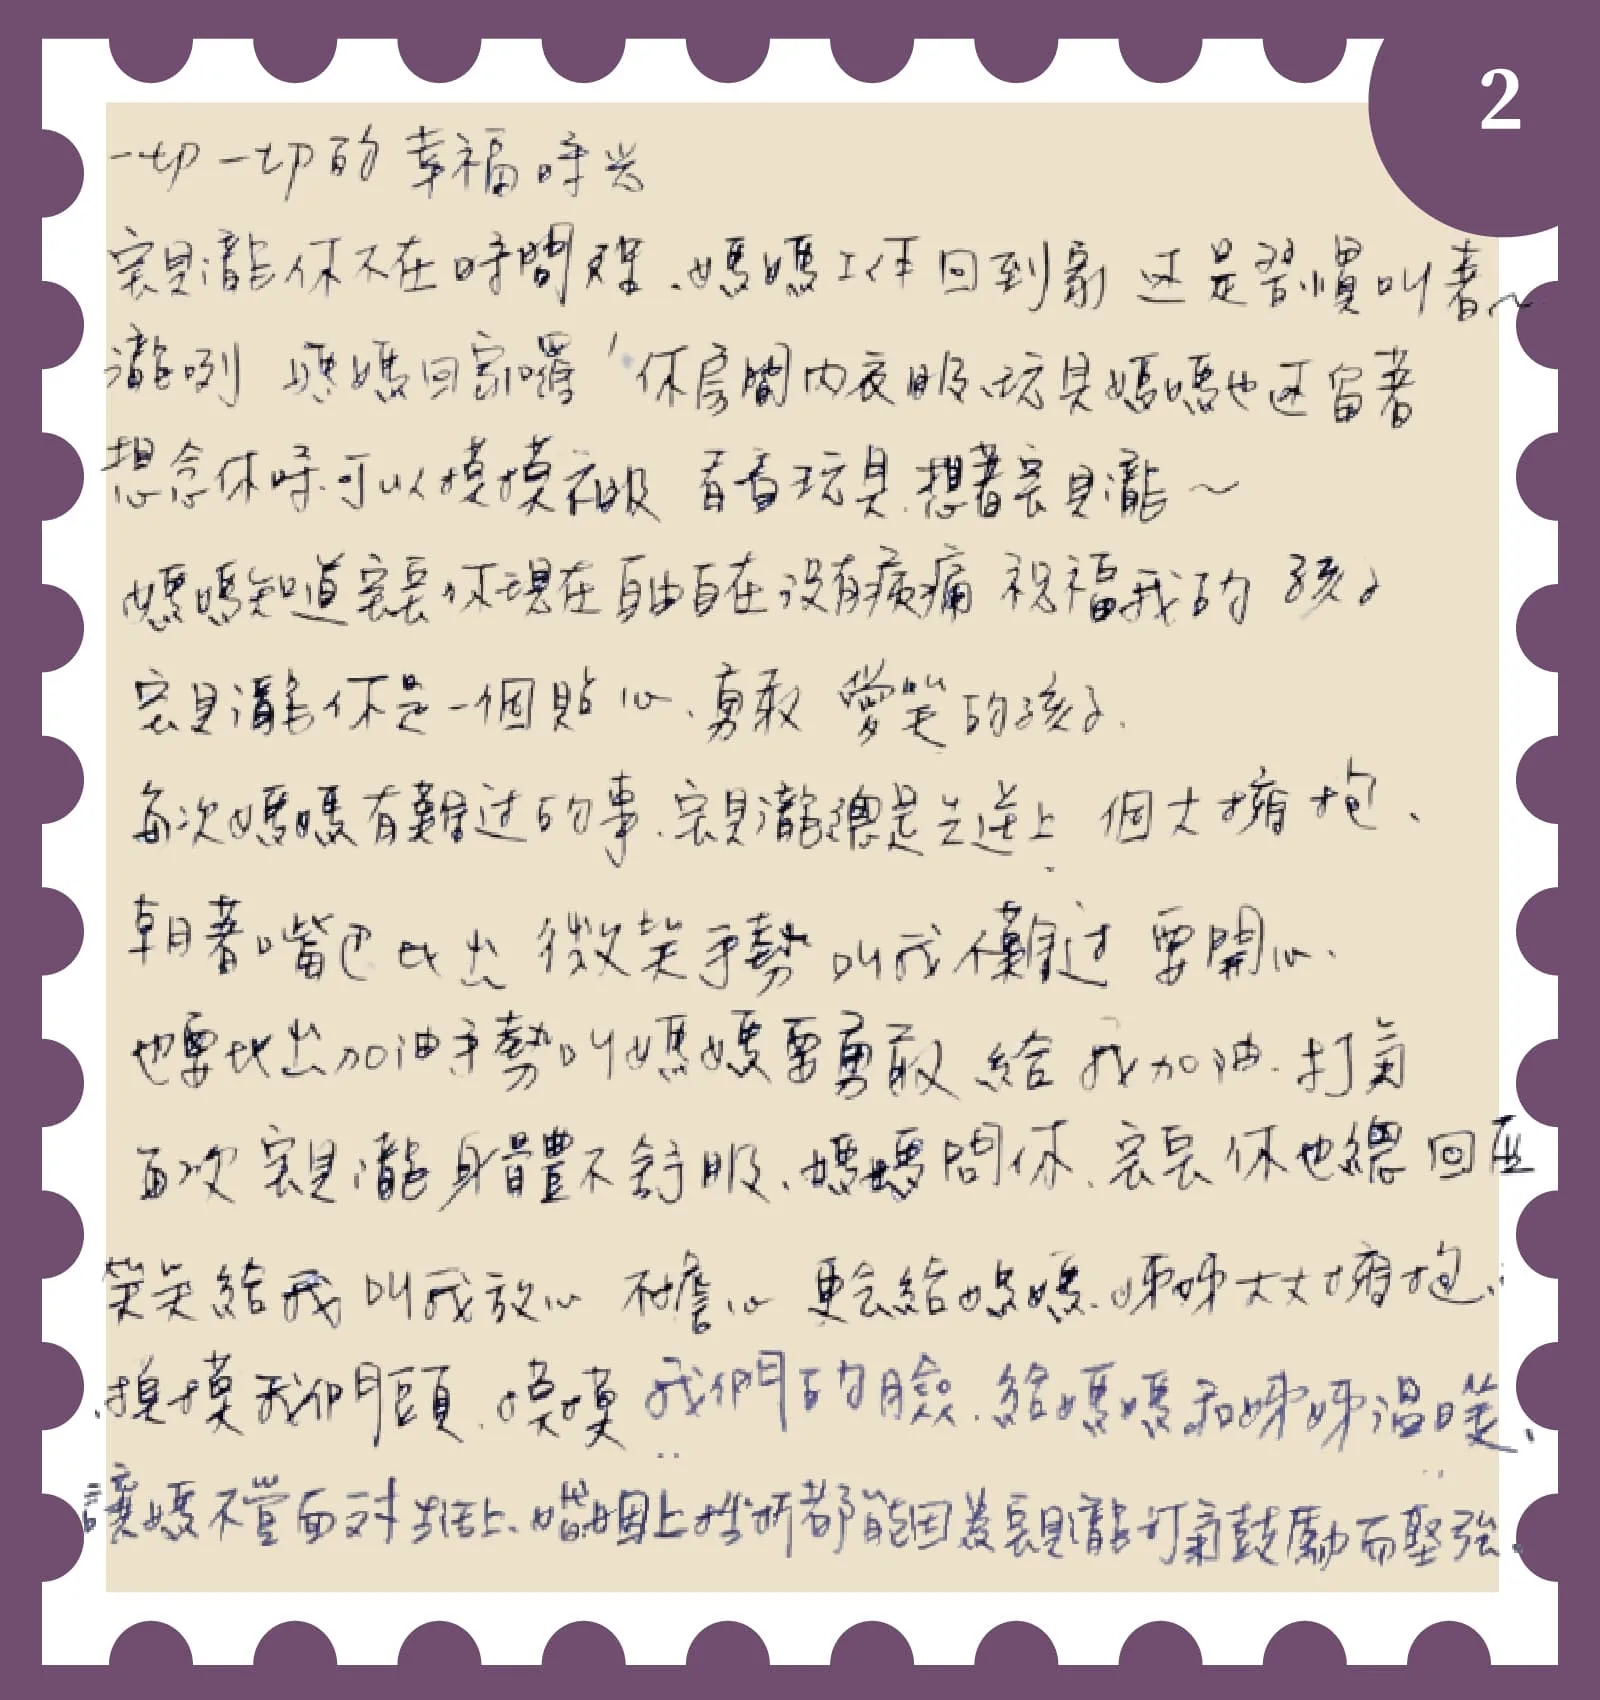 2
一切一切的幸福時光
宸見瀧你不在時間裡、媽媽工作回到家 还是習慣叫著~
瀧咧 媽媽回家囉,你房間内衣服、玩具媽媽也还留著
想念你時.可以摸摸衣服 看看玩具.想著宸見瀧~
媽媽知道宸宸你現在自由自在没有病痛 祝福我的孩子
宸見瀧你是一個貼心、勇敢 愛笑的孩子.
每次媽媽有難过的事.宸見瀧總是先送上 個大擁抱、
朝著嘴巴比出 微笑手勢 叫我不難过 要開心.
也要比出加油手勢叫媽媽要勇敢 給我加油.打氣
每次宸見瀧身體不舒服、媽媽問你.宸宸你也總回
笑笑給我 叫我放心 不擔心 更会給媽媽.姊姊大大擁抱、
摸摸我們頭.摸摸我們的臉.給媽媽和姊姊温暖、
讓媽不管面对生活上、婚姻上挫折都能因為宸見瀧打氣鼓勵而堅強.